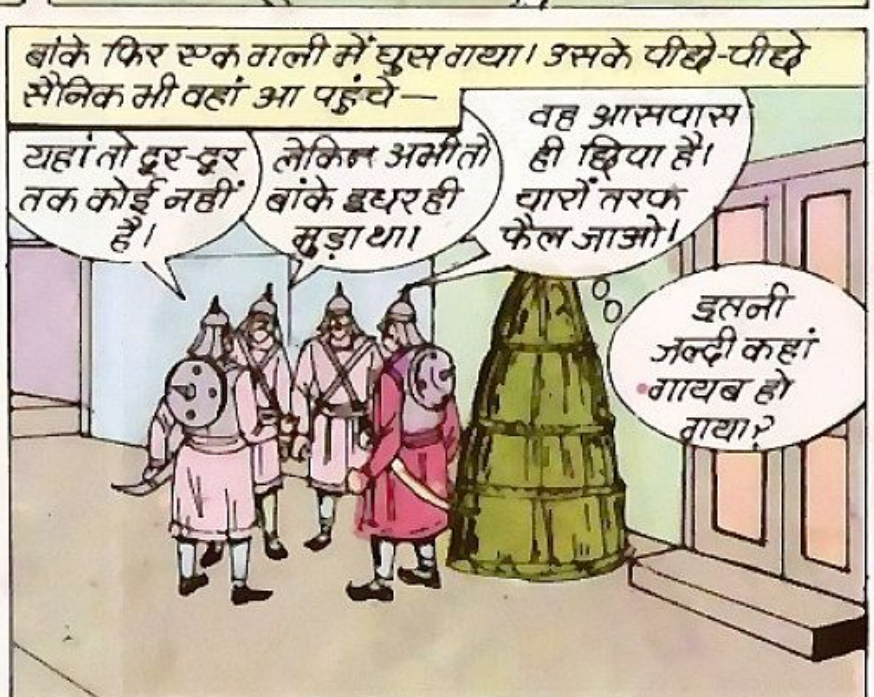 बांके फिर एक गली में घुस गया। उसके पीछे-पीछे
सैनिक भी वहां आ पहुंचे —
यहां तो दूर-दूर
तक कोई नहीं
है।
लेकिन अभी तो
बांके इधर ही
मुड़ा था।
वह आसपास
ही छिपा है।
चारों तरफ
फैल जाओ।
इतनी
जल्दी कहां
गायब हो
गया?